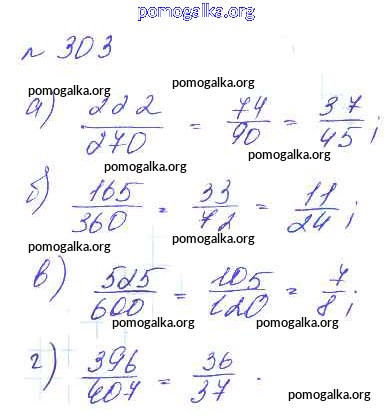 pomogalka.org
№ 303
pomogalka.org pomogalka.org
а) 222/270 = 74/90 = 37/45;
pomogalka.org pomogalka.org
б) 165/360 = 33/72 = 11/24;
pomogalka.org pomogalka.org
в) 525/600 = 105/120 = 7/8;
pomogalka.org pomogalka.org
г) 396/407 = 36/37.
pomogalka.org